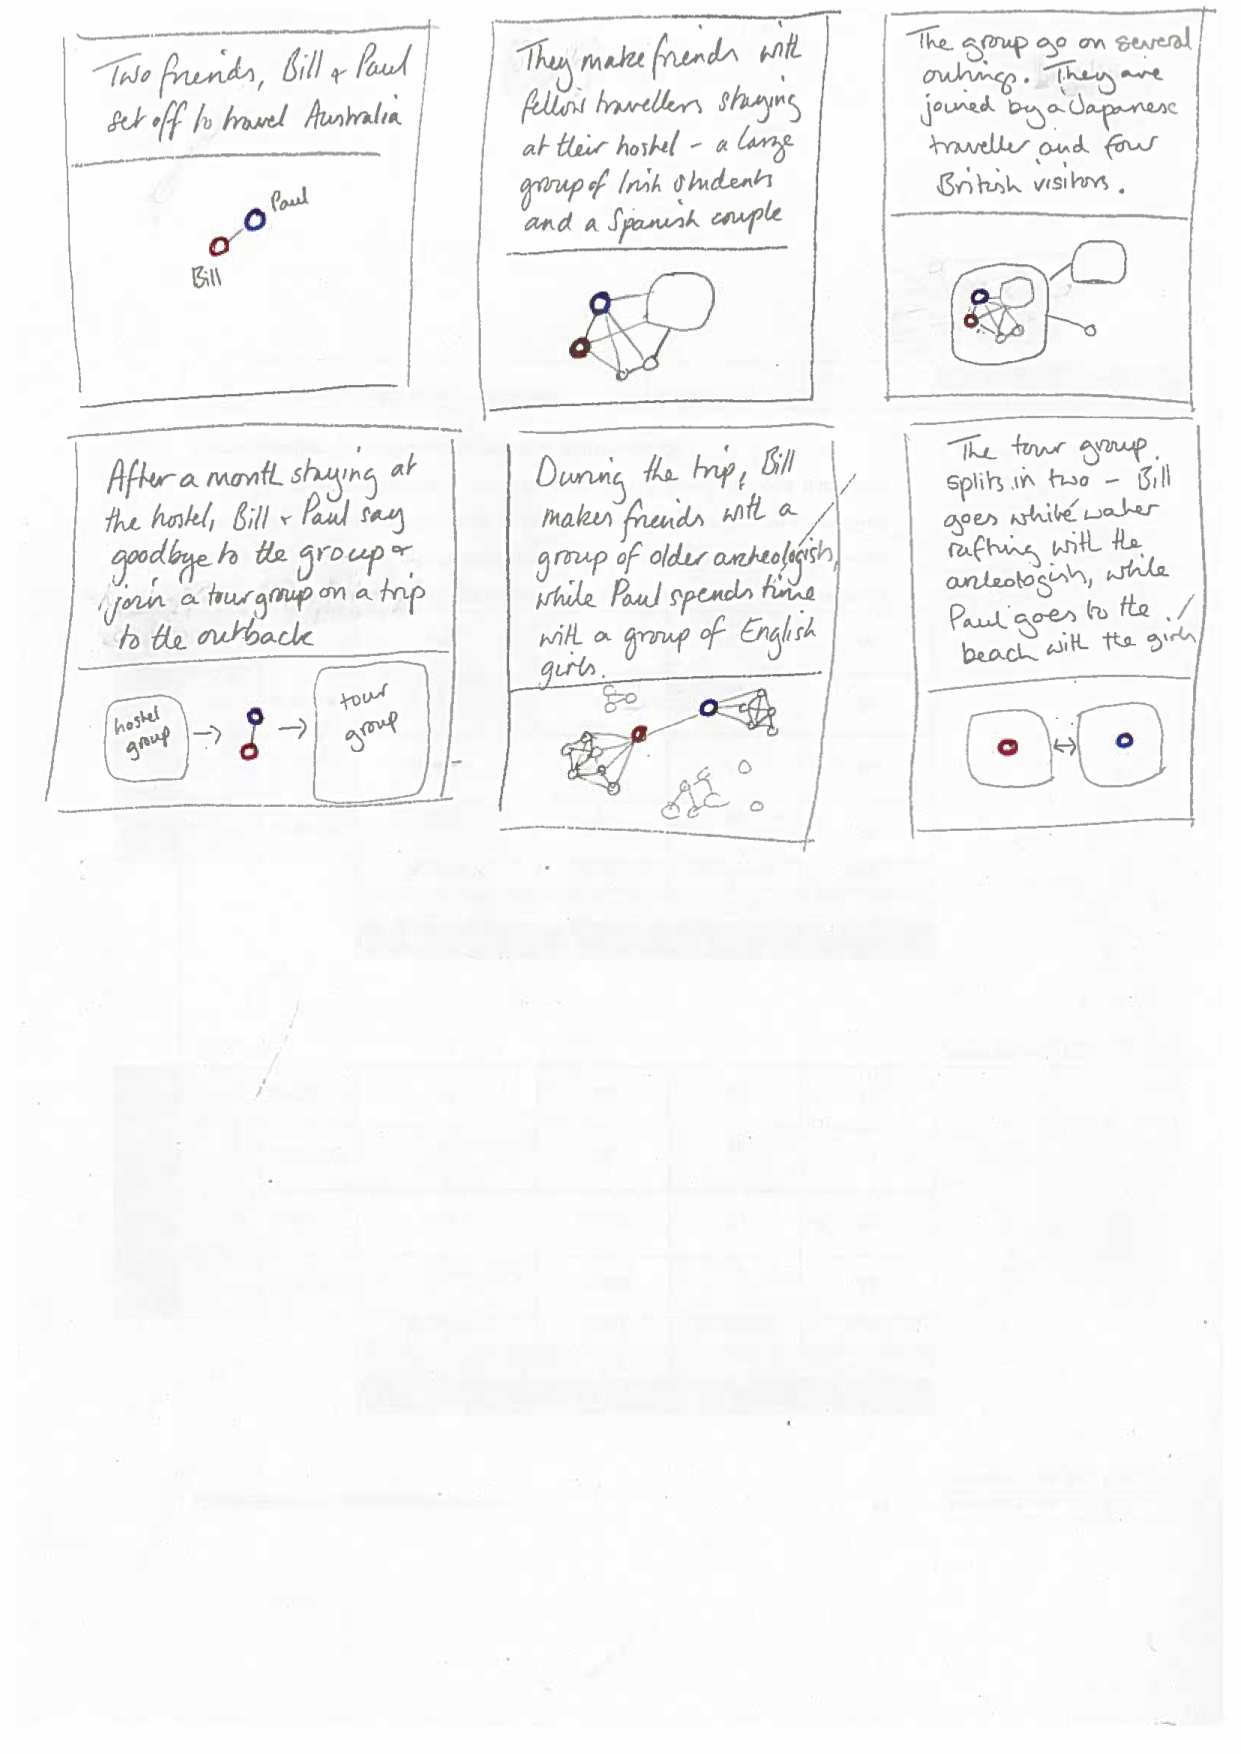 Two friends, Bill + Paul
set off to travel Australia
Paul
Bill
They make friends with
fellow travellers staying
at their hostel - a large
group of Irish students
and a Spanish couple
The group go on several
outings. They are
joined by a Japanese
traveller and four
British visitors.
After a month staying at
the hostel, Bill + Paul say
goodbye to the group +
join a tour group on a trip
to the outback
hostel
group
tour
group
During the trip, Bill
makes friends with a
group of older archeologists,
while Paul spends time
with a group of English
girls.
The tour group
splits in two - Bill
goes white water
rafting with the
archeologists, while
Paul goes to the
beach with the girls